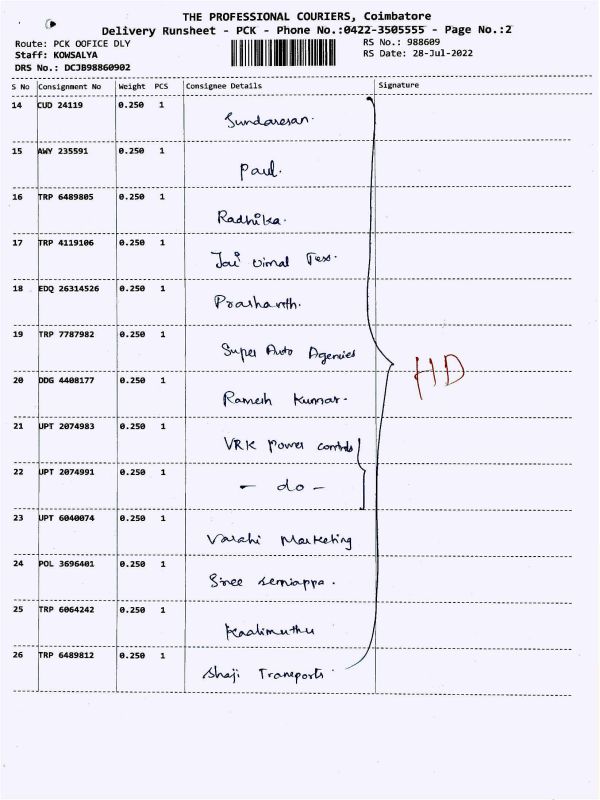 THE PROFESSIONAL COURIERS, Coimbatore
Delivery Runsheet - PCK - Phone No.:0422-3505555 - Page No.:2
Route: PCK OOFICE DLY
RS No.: 988609
Staff: KOWSALYA
RS Date: 28-Jul-2022
DRS No.: DCJB98860902
S No Consignment No Weight PCS Consignee Details Signature
14 CUD 24119 0.250 1
Sundaresan.
15 AWY 235591 0.250 1
Paul.
16 TRP 6489805 0.250 1
Radhika.
17 TRP 4119106 0.250 1
Jai vimal Tess.
18 EDQ 26314526 0.250 1
Prashanth.
19 TRP 7787982 0.250 1
Super Auto Agencies
HD
20 DDG 4408177 0.250 1
Ramesh Kumar.
21 UPT 2074983 0.250 1
VRK Power controls
22 UPT 2074991 0.250 1
- do -
23 UPT 6040074 0.250 1
Varahi Marketing
24 POL 3696401 0.250 1
Sree semiappa.
25 TRP 6064242 0.250 1
Kaalimuthu
26 TRP 6489812 0.250 1
Shaji Transports